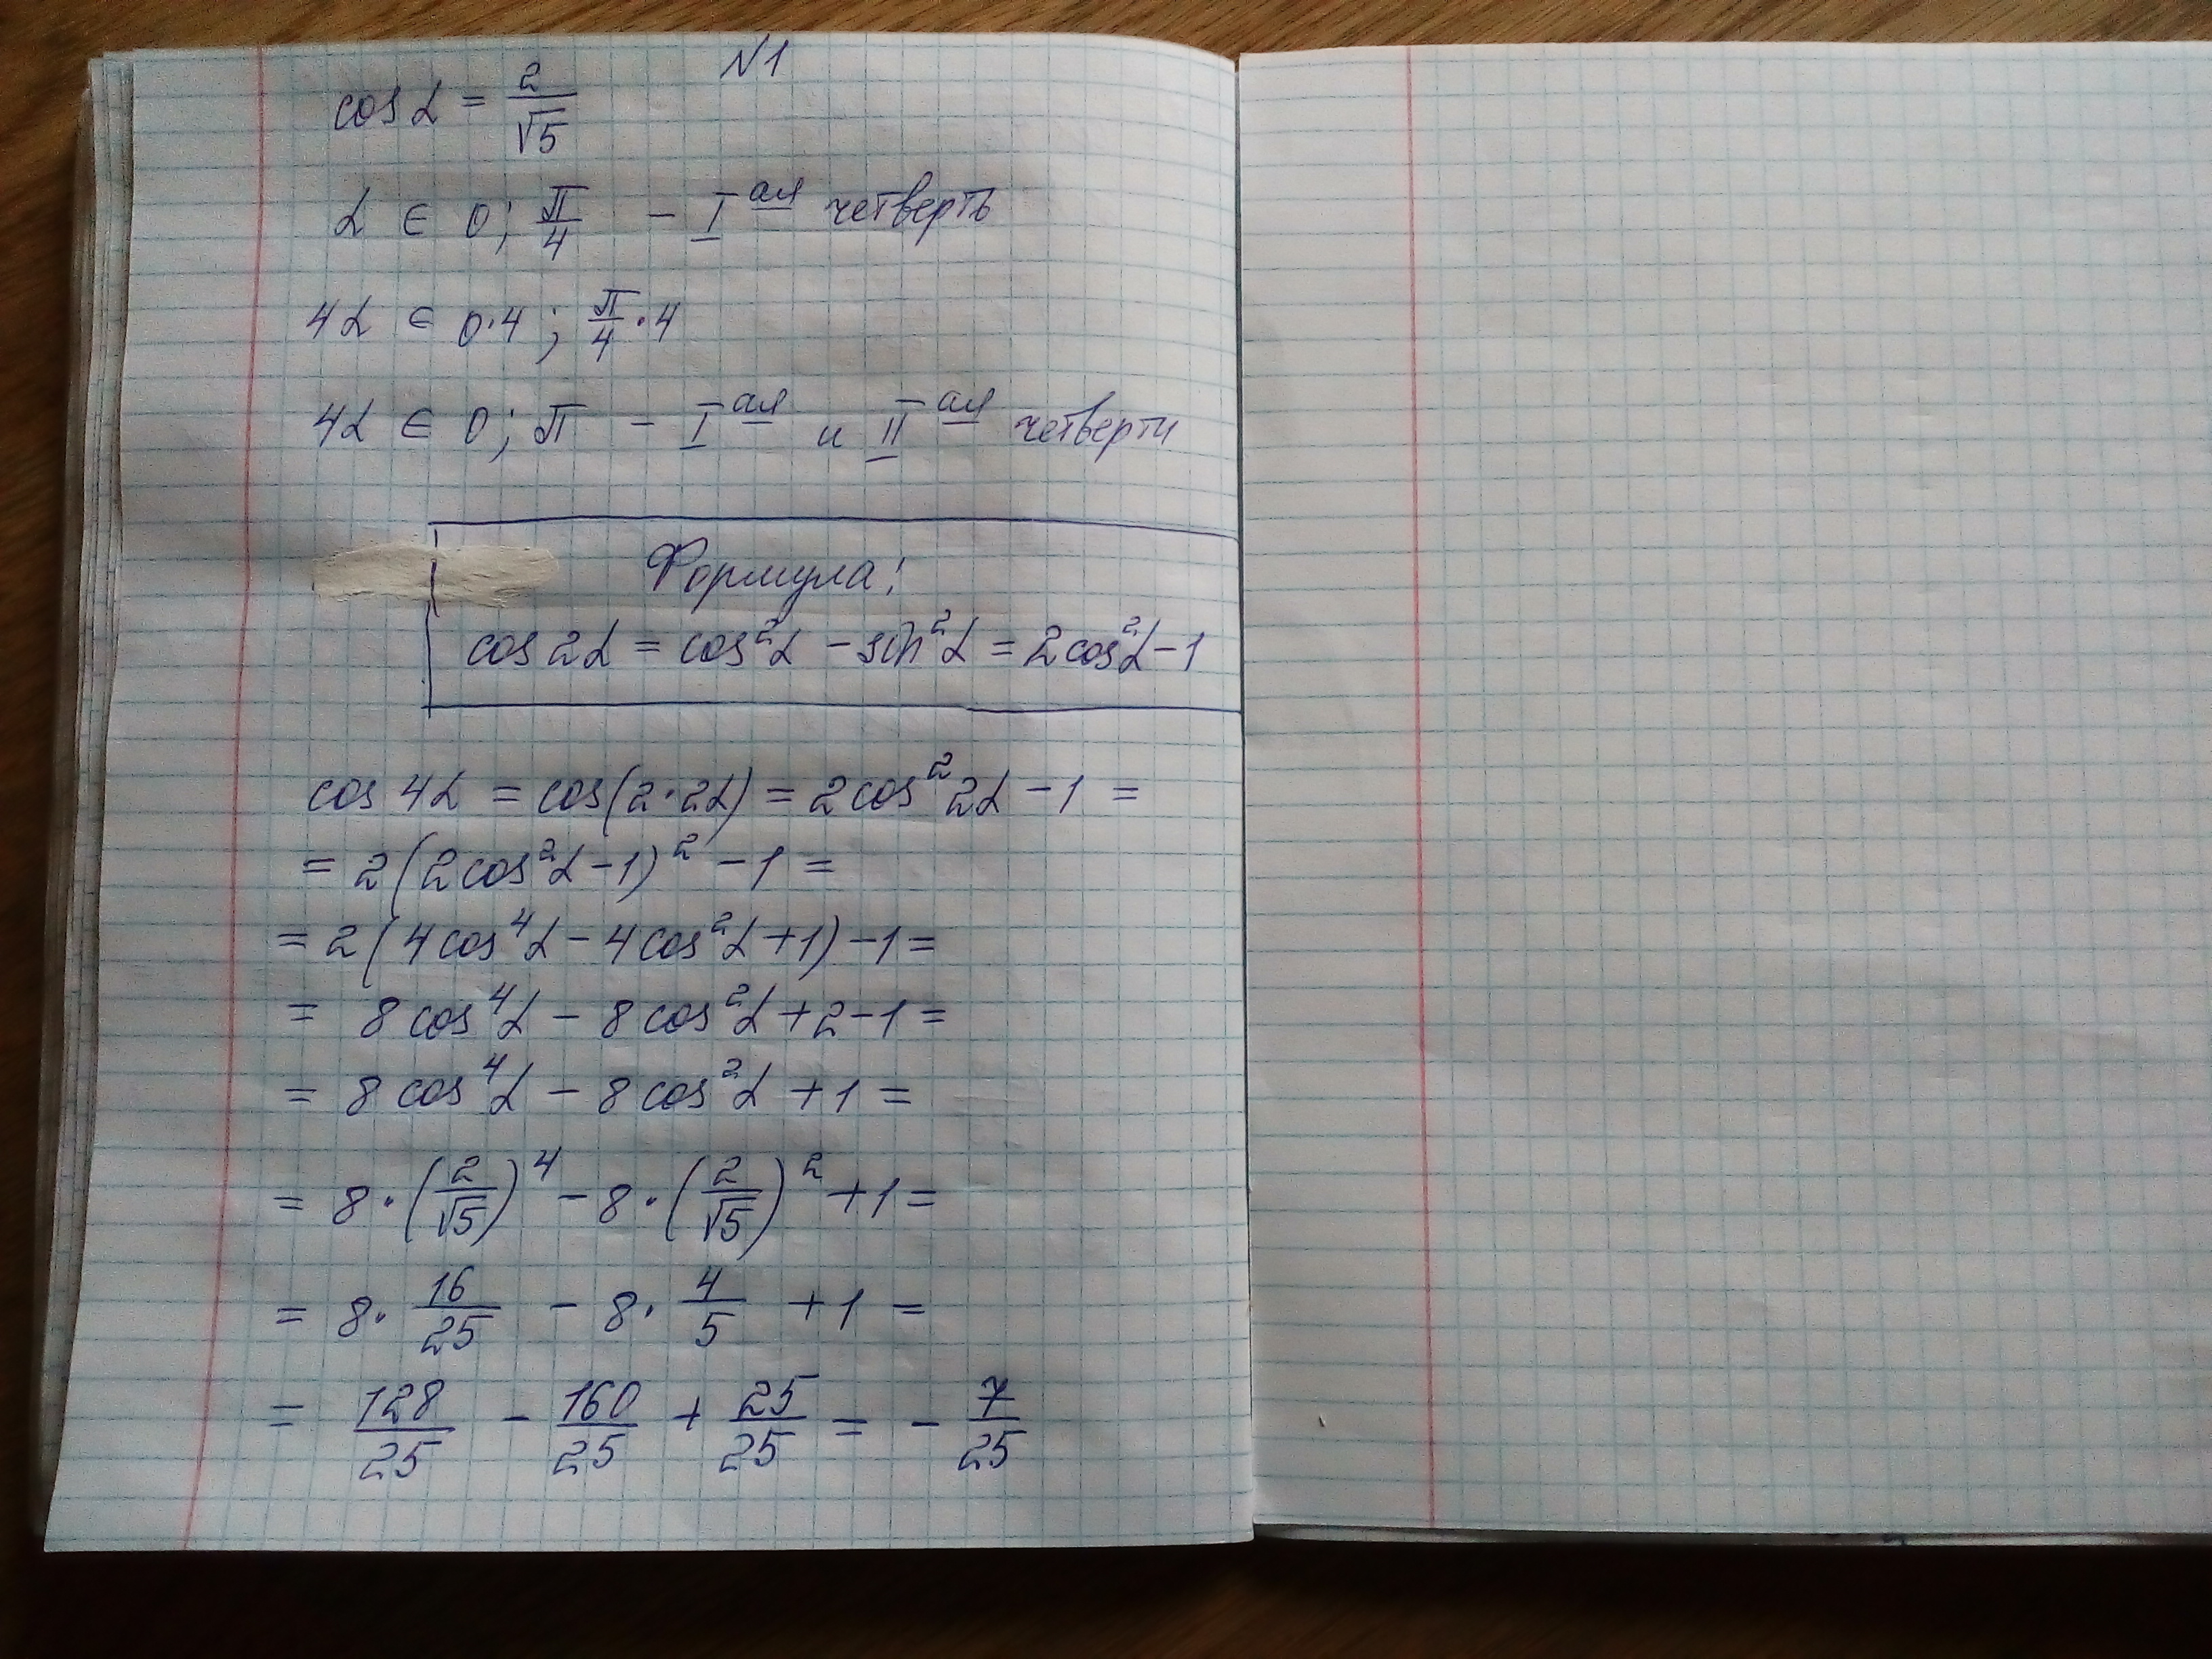 N1
cos α = 2/√5
α ∈ 0; π/4 – I ая четверть
4α ∈ 0·4 ; π/4 · 4
4α ∈ 0; π – I ая и II ая четверти
Формула:
cos 2α = cos²α – sin²α = 2cos²α – 1
cos 4α = cos(2·2α) = 2cos²2α – 1 =
= 2(2cos²α – 1)² – 1 =
= 2(4cos⁴α – 4cos²α + 1) – 1 =
= 8cos⁴α – 8cos²α + 2 – 1 =
= 8cos⁴α – 8cos²α + 1 =
= 8·(2/√5)⁴ – 8·(2/√5)² + 1 =
= 8· 16/25 – 8· 4/5 + 1 =
= 128/25 – 160/25 + 25/25 = – 7/25